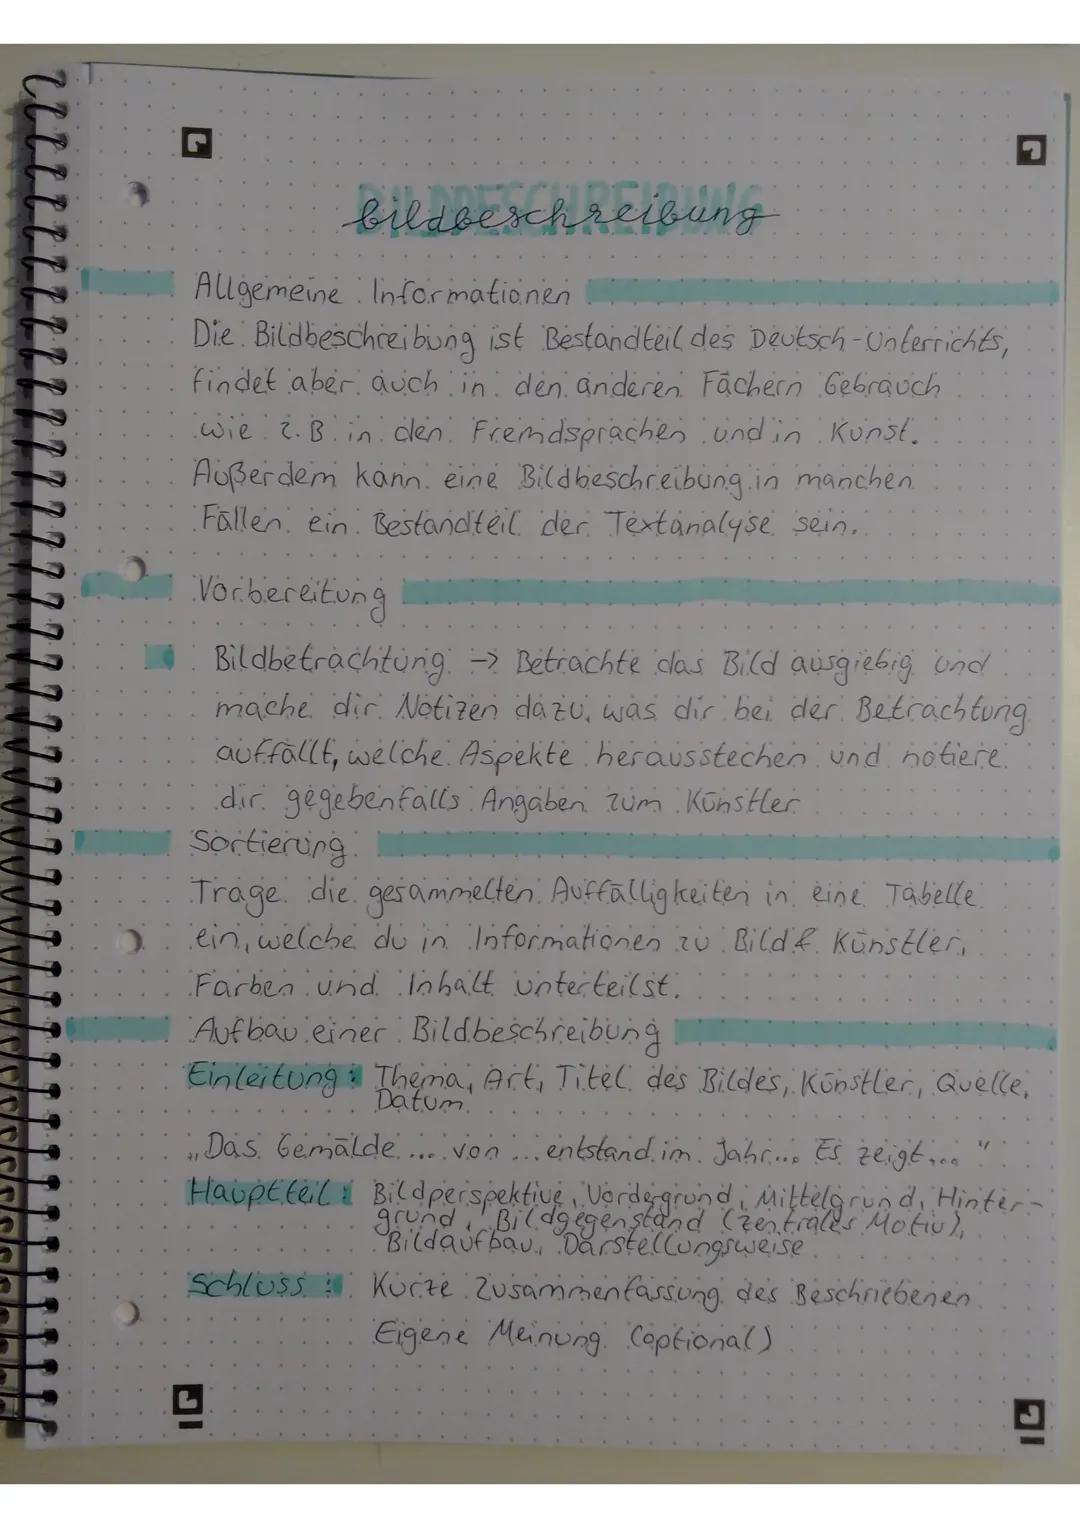 BILDBESCHREIBUNG
bildbeschreibung
Allgemeine Informationen
Die Bildbeschreibung ist Bestandteil des Deutsch-Unterrichts,
findet aber auch in den anderen Fächern Gebrauch
wie z.B. in den Fremdsprachen und in Kunst.
Außerdem kann eine Bildbeschreibung in manchen
Fällen ein Bestandteil der Textanalyse sein.
Vorbereitung
Bildbetrachtung -> Betrachte das Bild ausgiebig und
mache dir Notizen dazu, was dir bei der Betrachtung
auffällt, welche Aspekte herausstechen und notiere
dir gegebenfalls Angaben zum Künstler
Sortierung
Trage die gesammelten Auffälligkeiten in eine Tabelle
ein, welche du in Informationen zu Bild & Künstler,
Farben und Inhalt unterteilst.
Aufbau einer Bildbeschreibung
Einleitung: Thema, Art, Titel des Bildes, Künstler, Quelle,
Datum
„Das Gemälde ... von ... entstand im Jahr... Es zeigt..."
Hauptteil: Bildperspektive, Vordergrund, Mittelgrund, Hinter-
grund, Bildgegenstand (zentrales Motiv),
Bildaufbau, Darstellungsweise
Schluss: Kurze Zusammenfassung des Beschriebenen
Eigene Meinung (optional)